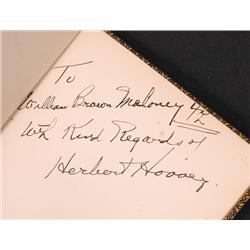 To
William Brown Meloney
with Kind Regards of
Herbert Hoover